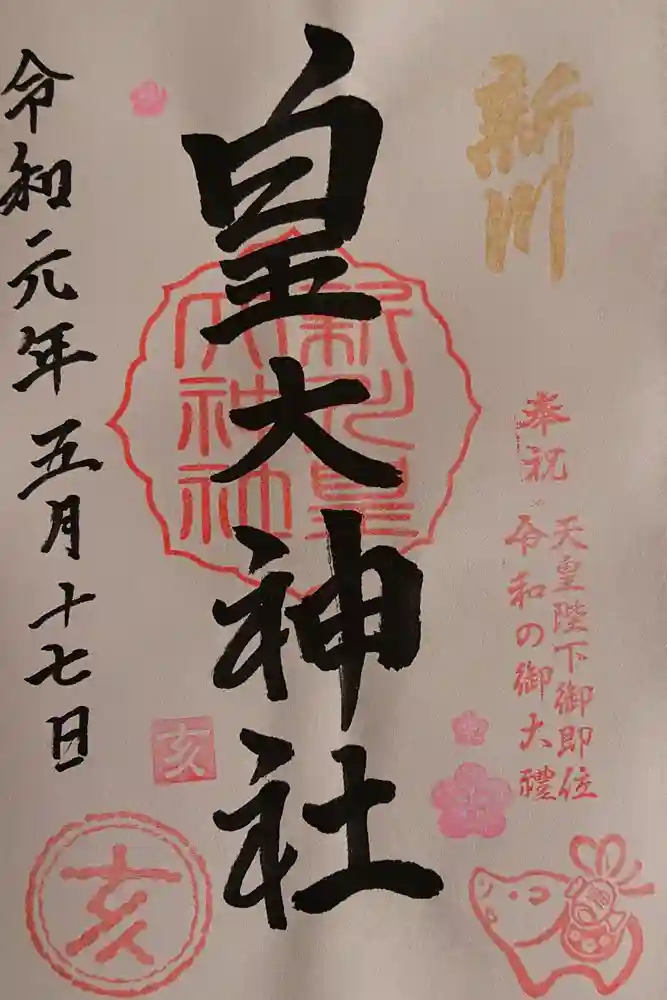 新川
奉祝
天皇陛下御即位
令和の御大禮
皇大神社
新川皇
大神社
令和元年五月十七日
亥
亥